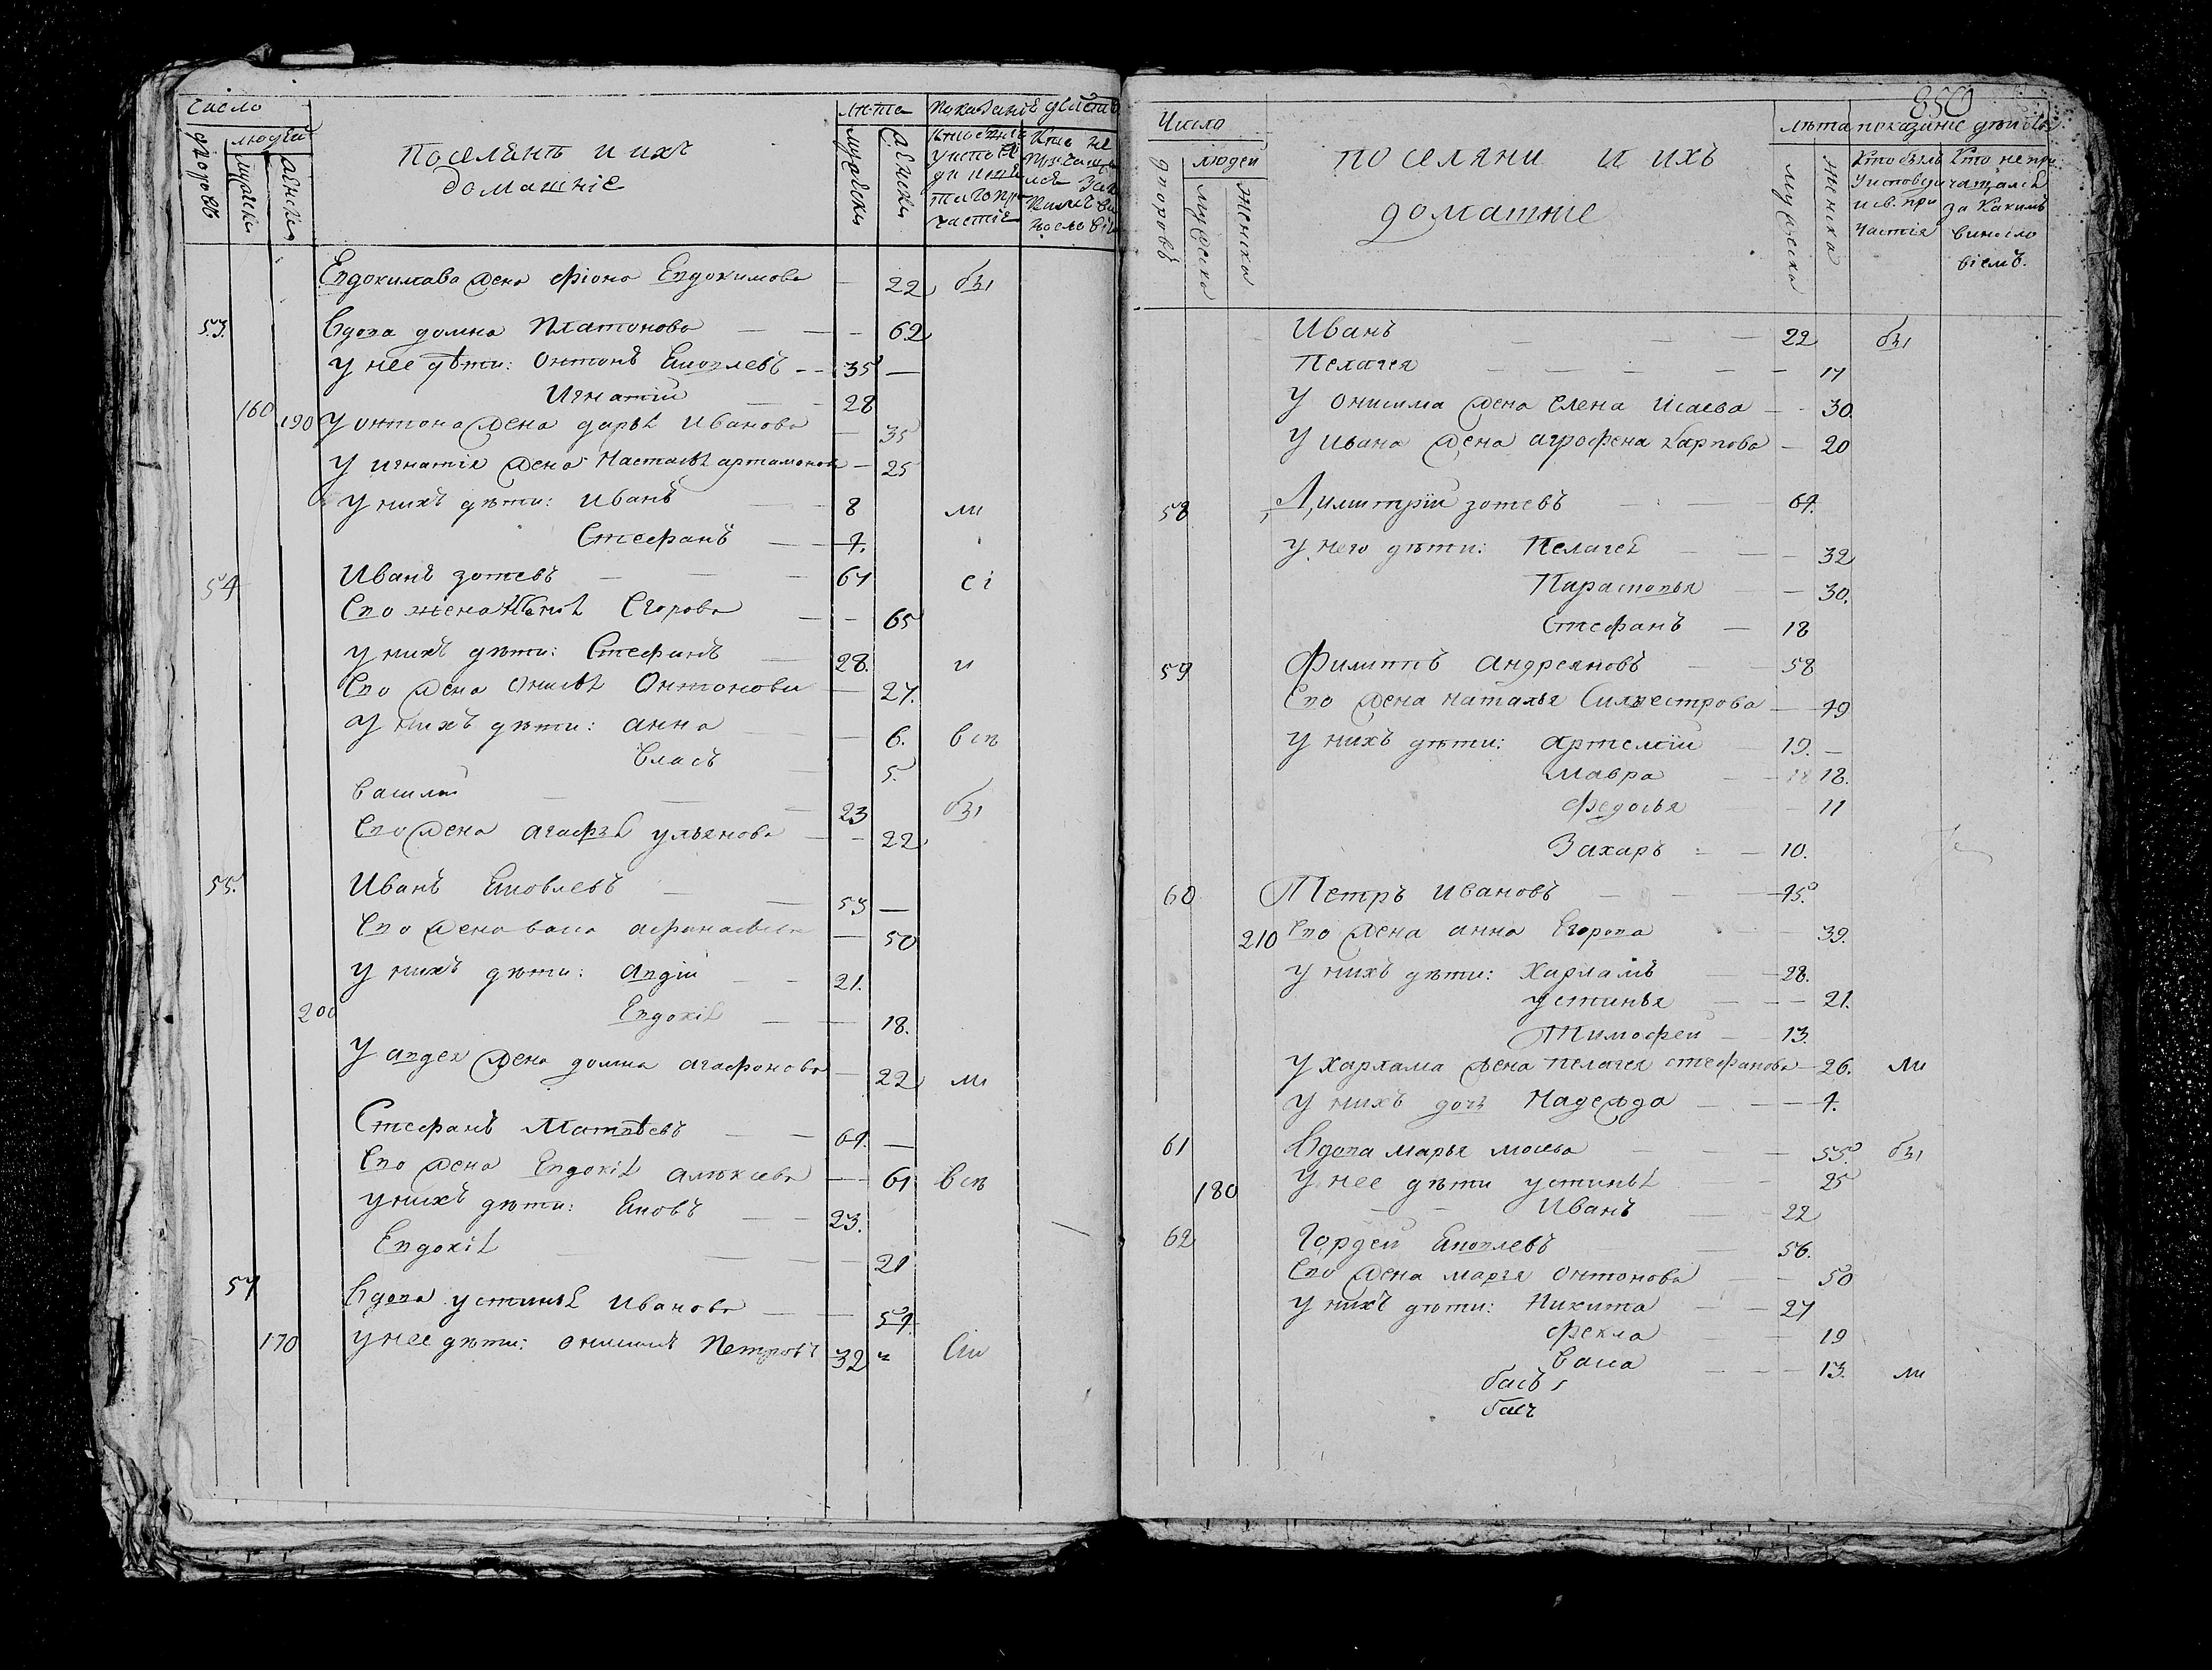 Число
людей
дворовъ
мужска
женска
Поселянъ и ихъ
домашніе
лѣта
мужска
женска
Показаніе дѣйства
Евдокимава жена фіона Евдокимова — 22 бы
53. Вдова домна Платонова — — — 62
у нее дѣти: онтонъ Яковлевъ — 35 —
Игнатій — 28
160 190 у онтона жена дарья иванова — 35
у игнатія жена Настасья артамонов — 25
у нихъ дѣти: иванъ — 8 ли
Стефанъ — 4.
54 Иванъ зотевъ — — — 67 сі
Ево жена Егорова — — 65
у нихъ дѣти: Стефанъ — 28. и
Ево жена онисья Онтонова — 27.
У нихъ дѣти: анна — — 6. всѣ
Власъ — 5.
Василій — — — 23 бы
Ево жена агафья ульянова — — 22
55. Иванъ Яковлевъ — — 53 —
Ево жена васа афанасьева — 50
у нихъ дѣти: авдій — — 21.
200 Евдокія — — 18.
У авдея жена домна агафонова — 22 ли
Стефанъ Матвѣевъ — — 64. —
Ево жена Евдокія алѣксѣева — — 61 всѣ
у нихъ дѣти: Яковъ — — 23.
Евдокія — — — 21
57 Вдова устинья иванова — — 54.
170 у нее дѣти: онисимъ Петровъ 32 "
850
Число
людей
дворовъ
мужска
женска
поселяни и ихъ
домашние
лѣта
мужска
женска
показание дѣйства
Кто былъ
у исповѣди
и св. при
частія
Кто не при
чащался
за какимъ
виносло
віемъ.
Иванъ — — — 22 бы
Пелагея — — — — — 17
У онисима жена елена исаева — - 30.
У ивана жена агрофена карпова — 20
58 Димитрій зотевъ — — 64.
у него дѣти: Пелагея — — — 32
Парасковья — — 30.
Стефанъ — 18
59 Филиппъ андреяновъ — — 58
Ево жена наталья Силвестрова — 49
у нихъ дѣти: артемій — 19. —
мавра — — 18.
федосья — 11
Захаръ — — 10.
60 Петръ ивановъ — — — 45.
210 Ево жена анна Егорова — — 39.
у нихъ дѣти: харламъ — 28.
устинья — — — 21.
Тимофей — 13.
у харлама жена пелагея стефанова — 26. ли
у нихъ дочь Надежда — — — 4.
61 Вдова марья мосева — — — 55. бы
180 У нее дѣти устинья — — 25
— — Иванъ — 22
62 Гордей Яковлевъ — 56.
Ево жена марья онтонова — — 50
у нихъ дѣти: Никита — — 27
фекла — — 19
васа — — — 13. ли